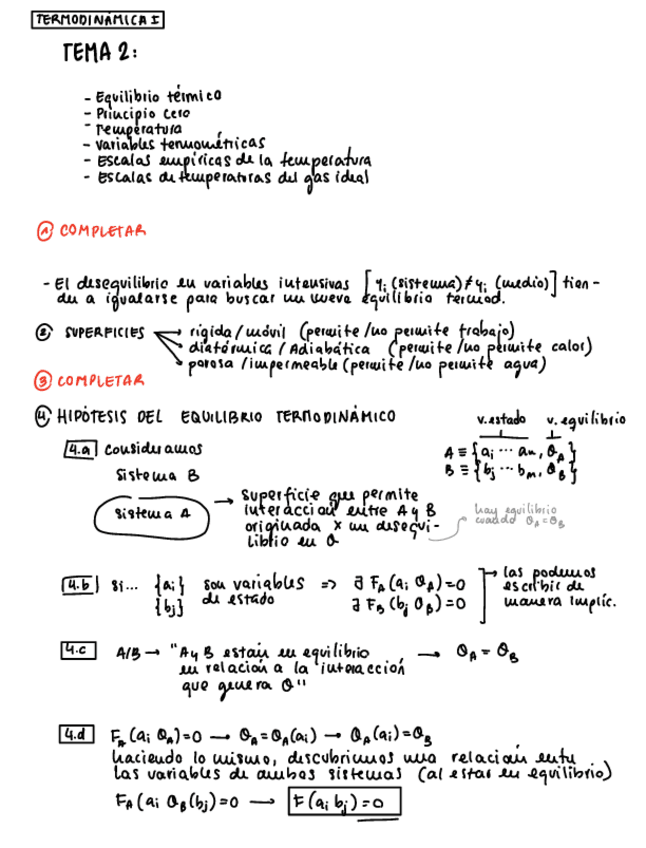 TERMODINÁMICA I
TEMA 2:
- Equilibrio térmico
- Principio cero
- Temperatura
- Variables termométricas
- Escalas empíricas de la temperatura
- Escalas de temperaturas del gas ideal
① COMPLETAR
- El desequilibrio en variables intensivas [yᵢ (sistema) ≠ yᵢ (medio)] tien-
den a igualarse para buscar un nuevo equilibrio termod.
② SUPERFICIES → rígida / móvil (permite / no permite trabajo)
→ diatérmica / Adiabática (permite / no permite calor)
→ porosa / impermeable (permite / no permite agua)
③ COMPLETAR
④ HIPÓTESIS DEL EQUILIBRIO TERMODINÁMICO
v. estado v. equilibrio
4.a Consideramos
A ≡ {aᵢ ... aₙ, θ_A}
B ≡ {bⱼ ... bₘ, θ_B}
Sistema B
Sistema A
→ Superficie que permite
interacción entre A y B
originada x un desequi-
librio en θ
hay equilibrio
cuando θ_A = θ_B
4.b Si... {aᵢ} son variables => ∃ F_A(aᵢ θ_A) = 0
{bⱼ} de estado ∃ F_B(bⱼ θ_B) = 0
→ las podemos
escribir de
manera implíc.
4.c A/B → "A y B están en equilibrio → θ_A = θ_B
en relación a la interacción
que genera θ"
4.d F_A(aᵢ θ_A) = 0 → θ_A = θ_A(aᵢ) → θ_A(aᵢ) = θ_B
haciendo lo mismo, descubrimos una relación entre
las variables de ambos sistemas (al estar en equilibrio)
F_A(aᵢ θ_B(bⱼ) = 0 → F(aᵢ bⱼ) = 0